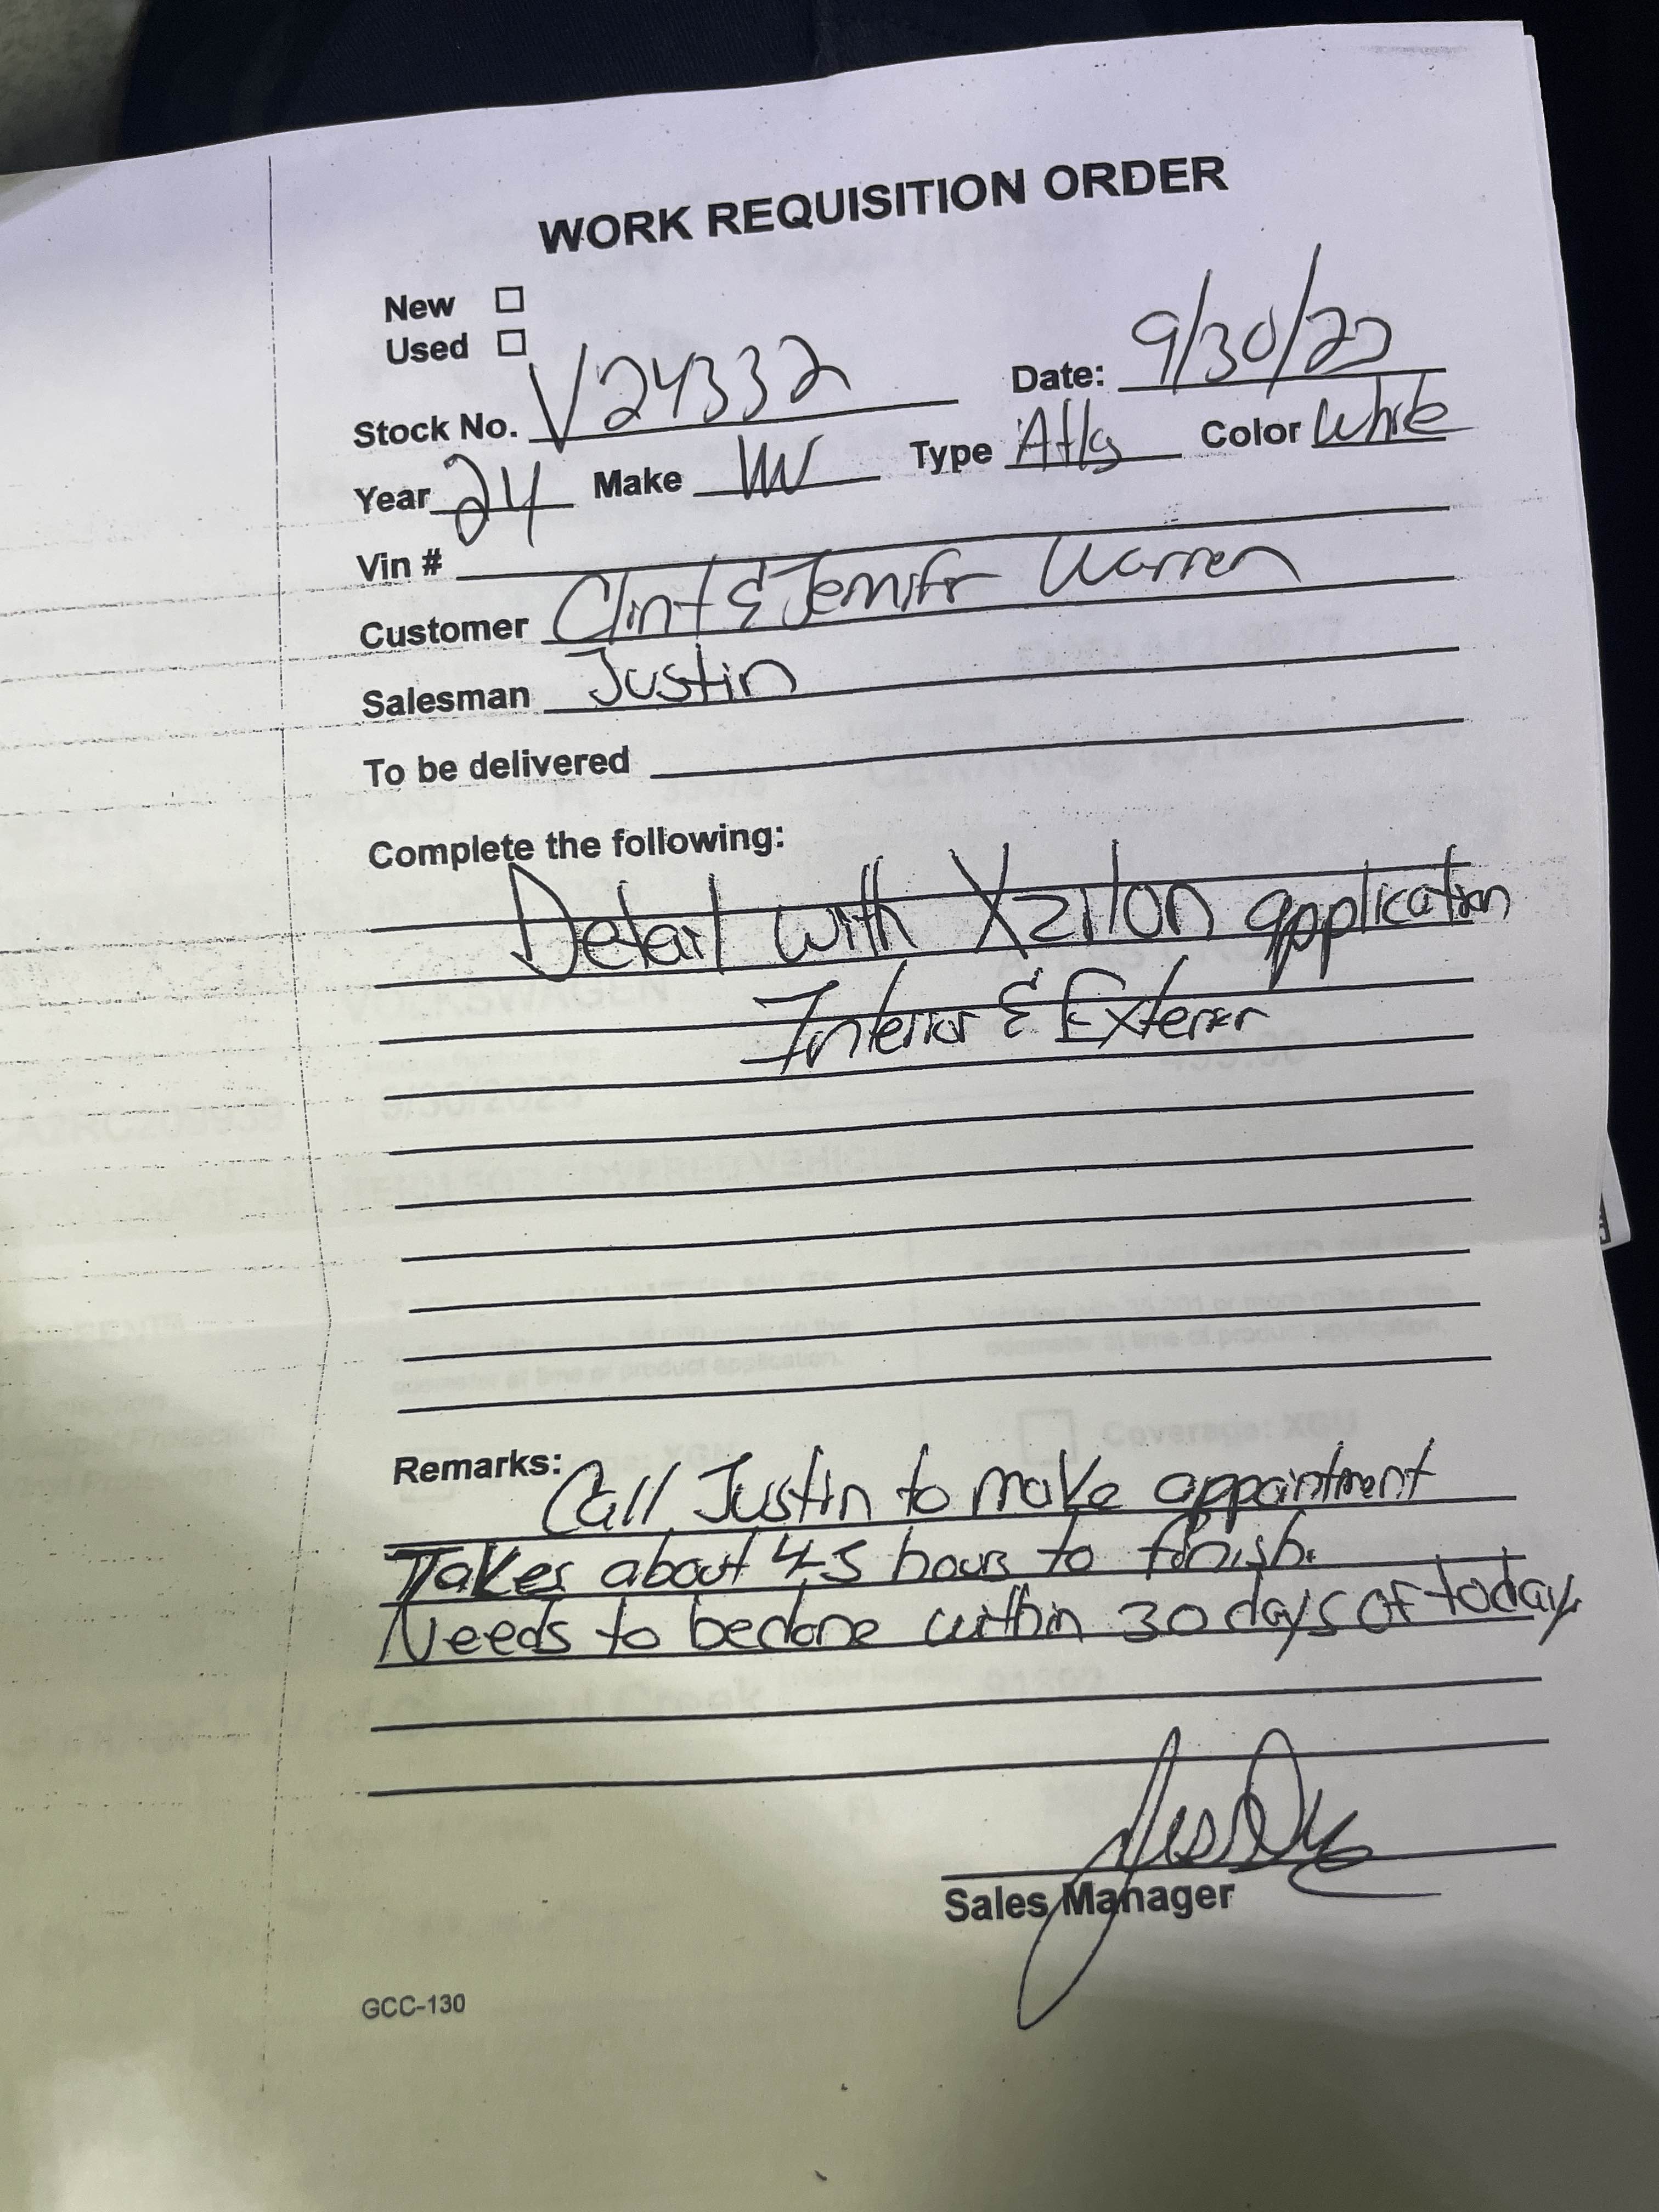 WORK REQUISITION ORDER
New ☐
Used ☐
Stock No. V24332 Date: 9/30/23
Year 24 Make VW Type Atls Color White
Vin #
Customer Clint & Jennifer Warren
Salesman Justin
To be delivered
Complete the following:
Detail with Xzilon application
Interior & Exterior
Remarks: Call Justin to make appointment
Takes about 4-5 hours to finish.
Needs to be done within 30 days of today
Sales Manager
GCC-130